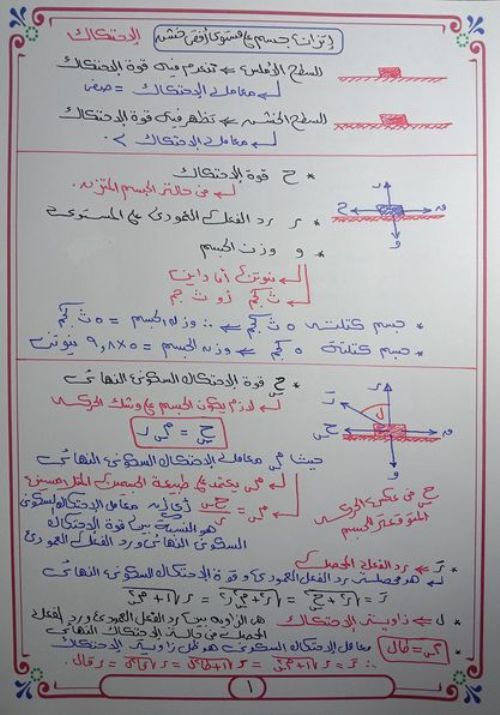 إتزان جسم على مستوى أفقى خشن
الإحتكاك
السطح الأملس ⇐ تنعدم فيه قوة الإحتكاك
معامل الإحتكاك = صفر
السطح الخشن ⇐ تظهر فيه قوة الإحتكاك
معامل الإحتكاك > ٠
* ح قوة الإحتكاك
فى حالة الجسم المتزن.
* ر رد الفعل العمودى على المستوى
* و وزن الجسم
نيوتن أو داين
ث كجم أو ث جم
* جسم كتلته ٥ ث كجم ⇐ ∴ وزن الجسم = ٥ ث كجم
* جسم كتلتة ٥ كجم ⇐ وزن الجسم = ٥×٩,٨ نيوتن
* حس قوة الإحتكاك السكونى النهائى
لازم يكون الجسم على وشك الحركة
حس = مس ر
حيث مس معامل الإحتكاك السكونى النهائى
مس يعتمد على طبيعة الجسمين
مس = حس / ر أى أنه معامل الإحتكاك السكونى
هو النسبة بين قوة الإحتكاك
السكونى النهائى ورد الفعل العمودى
حس فى عكس الحركة
* رَ ⇐ رد الفعل المحصل
هو محصلة رد الفعل العمودى وقوة الإحتكاك السكونى النهائى
رَ = √(ر² + حس²) = √(ر² + مس² ر²) = ر √(١ + مس²)
* ل ⇐ زاوية الإحتكاك هى الزاوية بين رد الفعل العمودى ورد الفعل
المحصل فى حالة الإحتكاك النهائى
* مس = طال معامل الإحتكاك السكونى هو ظل زاوية الإحتكاك
∴ رَ = ر √(١ + مس²) = ر √(١ + طا²ل) = ر √(قا²ل) = ر قال.
١